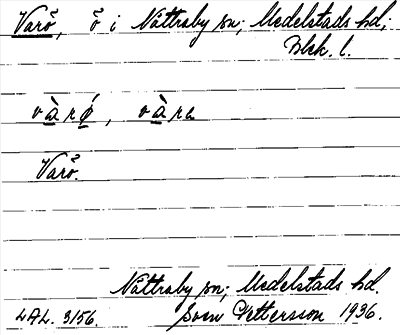 Varö, ö i Nättraby sn; Medelstads hd;
Blek. l.
Varö.
Nättraby sn; Medelstads hd.
LAL. 3156. Sven Pettersson 1936.